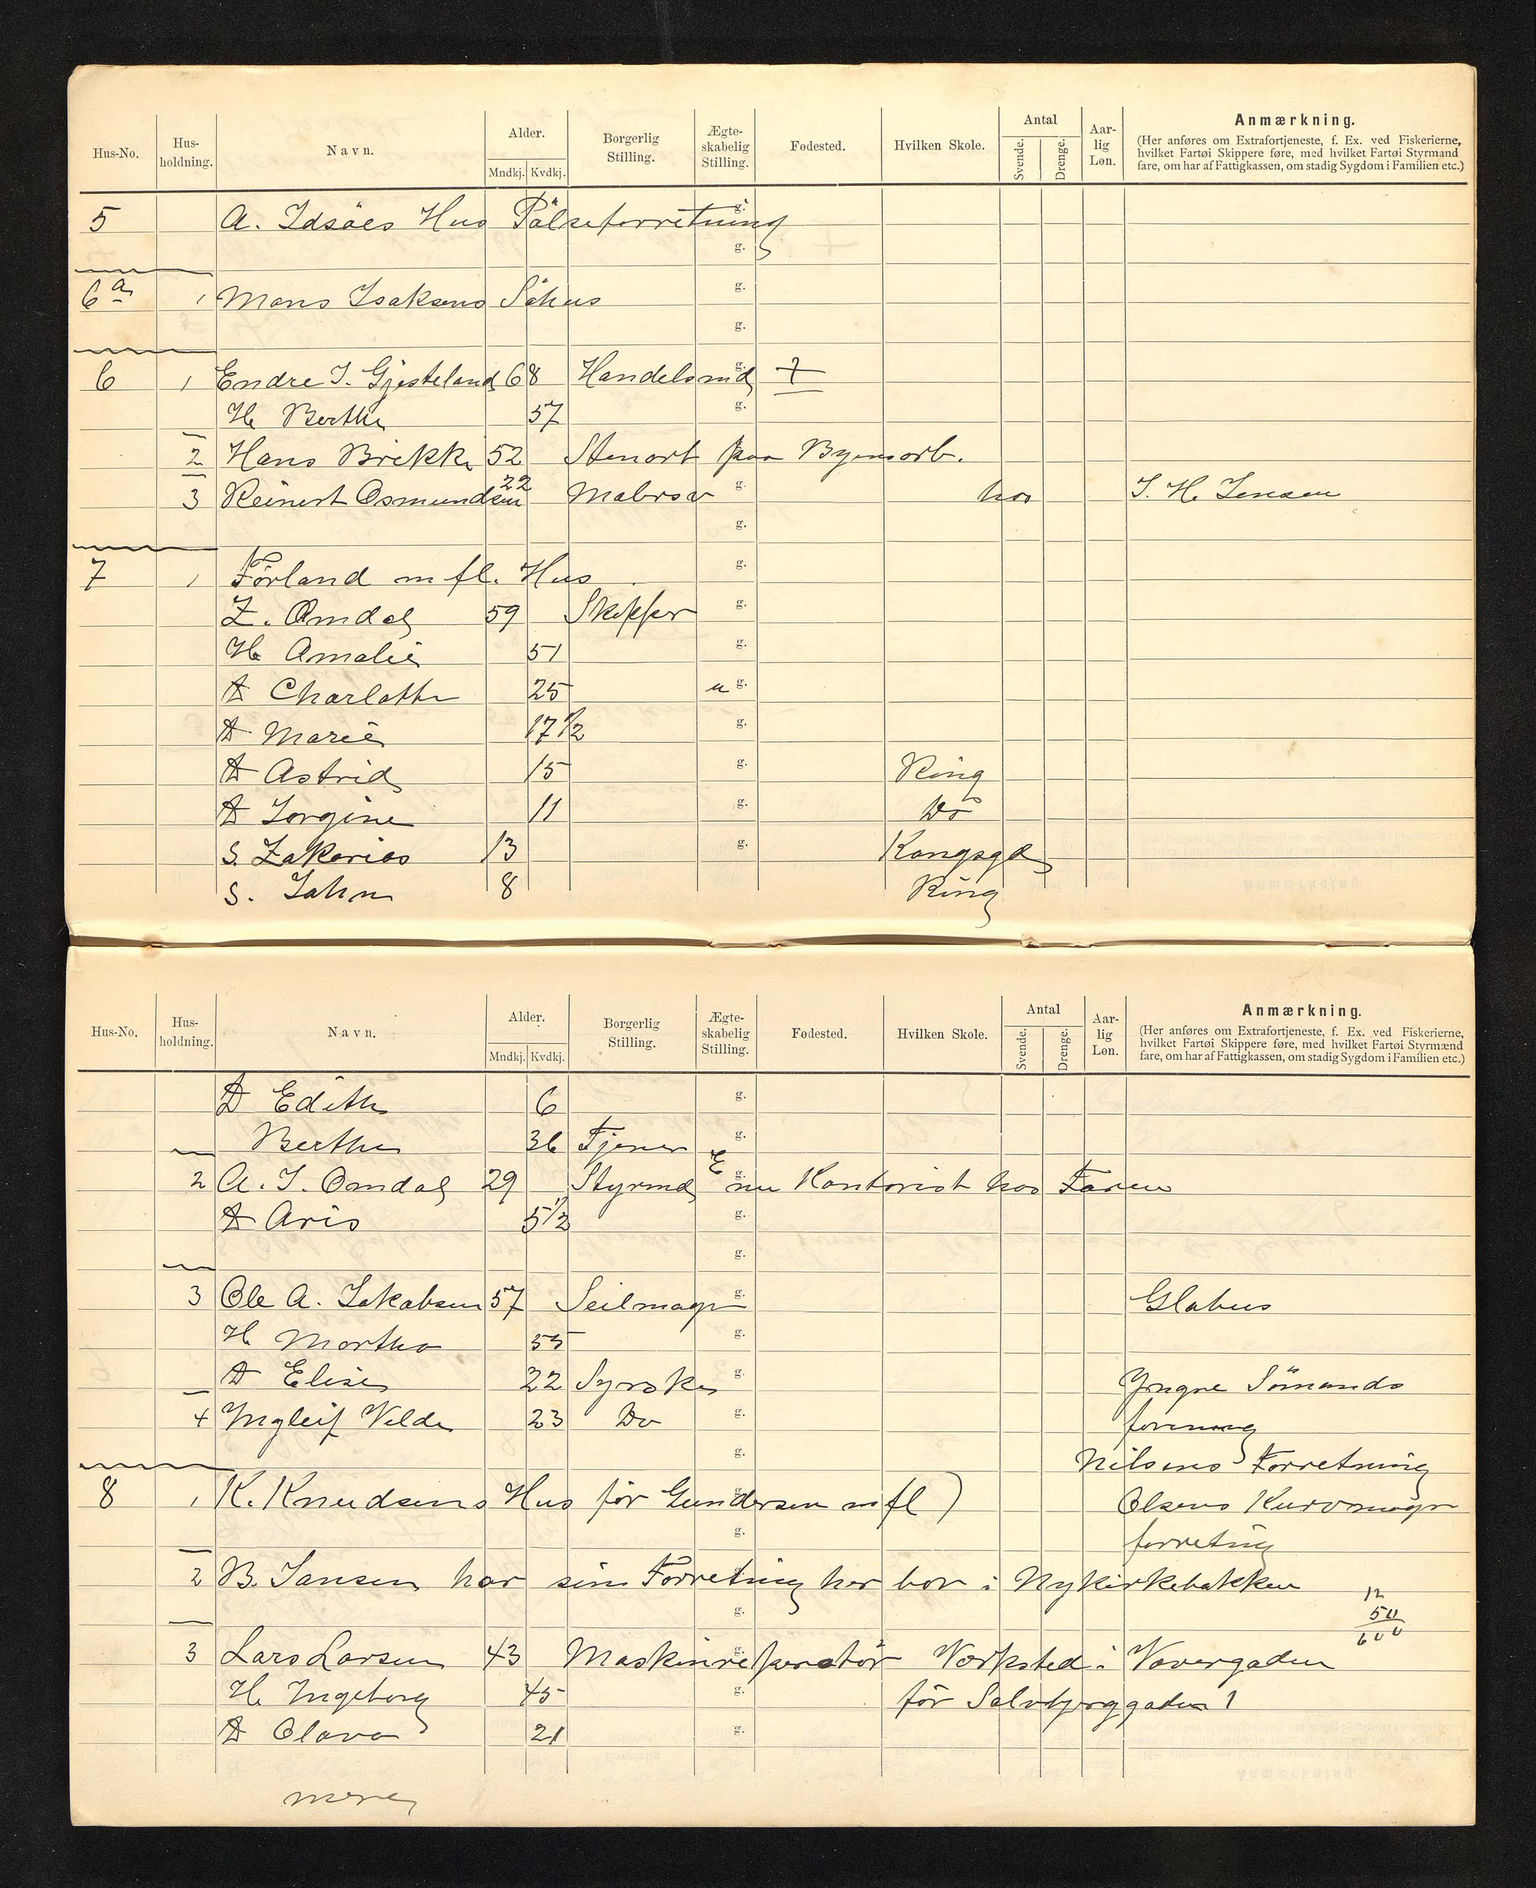 Hus-No. Hus-holdning. Navn. Alder. Mndkj. Kvdkj. Borgerlig Stilling. Ægte-skabelig Stilling. Fødested. Hvilken Skole. Antal Svende. Drenge. Aar-lig Løn. Anmærkning.
(Her anføres om Extrafortjeneste, f. Ex. ved Fiskerierne, hvilket Fartøi Skippere føre, med hvilket Fartøi Styrmænd fare, om har af Fattigkassen, om stadig Sygdom i Familien etc.)
5 A. Idsöes Hus Pölseforretning g.
g.
6a 1 Mons Isaksens Söhus g.
g.
6 1 Endre I. Gjesteland 68 Handelsmd g. +
H. Berthe 57 g.
2 Hans Brekke 52 Stenarb paa Byensarb.
3 Reinert Osmundsen 22 Malersv g. hos I. H. Jensen
g.
7 1 Förland m fl. Hus g.
Z. Omdal 59 Skipper g.
H. Amalie 51 g.
D Charlotte 25 u g.
D Marie 17 1/2 g.
D Astrid 15 g. Ring
D Jorgine 11 g. Do
S. Zakarias 13 g. Kongsgd
S. John 8 Ring
Hus-No. Hus-holdning. Navn. Alder. Mndkj. Kvdkj. Borgerlig Stilling. Ægte-skabelig Stilling. Fødested. Hvilken Skole. Antal Svende. Drenge. Aar-lig Løn. Anmærkning.
(Her anføres om Extrafortjeneste, f. Ex. ved Fiskerierne, hvilket Fartøi Skippere føre, med hvilket Fartøi Styrmænd fare, om har af Fattigkassen, om stadig Sygdom i Familien etc.)
D Edith 6 g.
Berthe 36 Tjener g.
2 A. I. Omdal 29 Styrmd E g. nu Kontorist hos Faren
D Aris 5 1/2 g.
g.
3 Ole A. Jakobsen 57 Seilmagr g. Globus
H Martha 55 g.
D Elise 22 Syerske g. Yngre Sömands
4 Ingleif Velde 23 Do g. forening
g. Nilsens Forretning
8 1 K. Knudsens Hus för Gundersen m fl) Olsens Kurvmagr
g. forretnig
2 B. Jansen har sin Forretnig her bor i Nykirkebakken
g. 12
50
600
3 Lars Larsen 43 Maskinreperatör Værksted i Vavergaden
H. Ingeborg 45 g. för Salvbjerggaden 1
D Olava 21 g.
mere